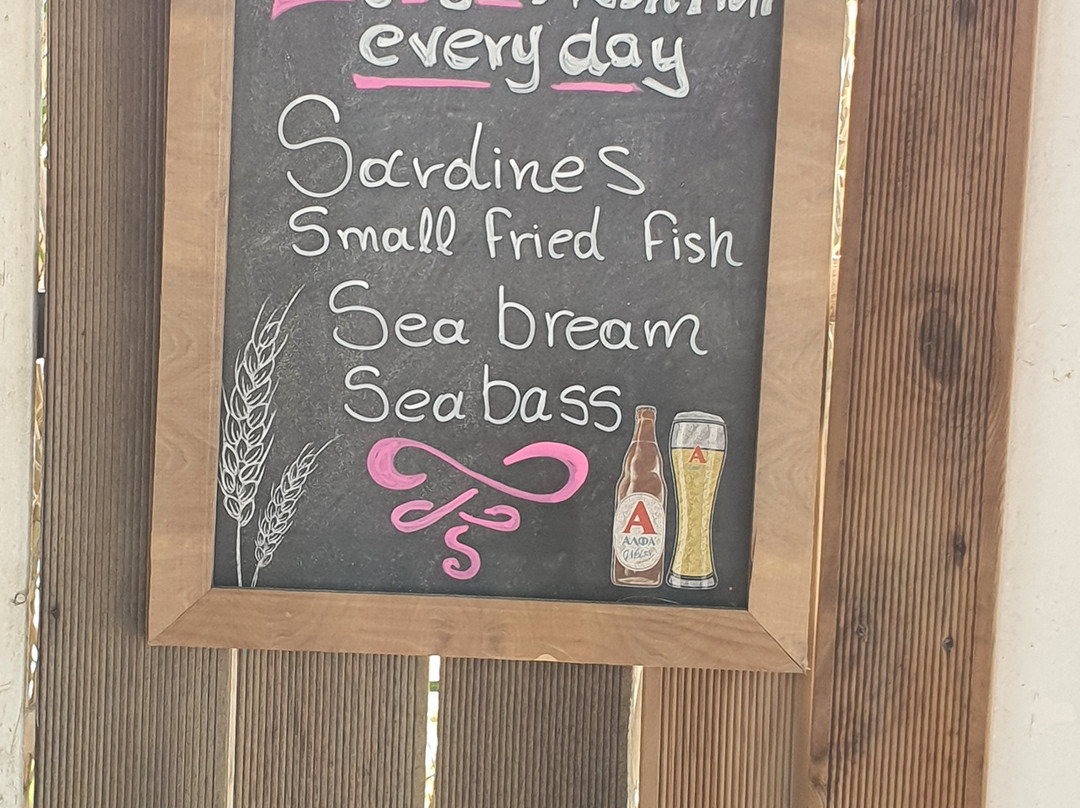 every day
Sardines
Small fried fish
Sea bream
Sea bass
A
A
ΑΛΦΑ